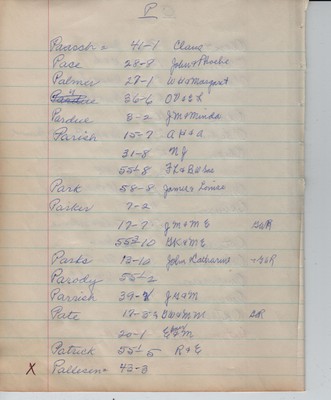 P
Paasch - 41-1 Claus
Pace 28-7 John & Phoebe
Palmer 27-1 W H & Margaret
36-6 O V & L
Pardue 3-2 J M & Minda
Parish 15-7 A H & A
31-8 N J
55-8 F L &
Park 58-8 James & Louise
Parker 7-2
17-7 J M & M E G&R
55-10 B K & M E
Parks 13-10 John Catharine - G&R
Parody 55-2
Parrish 39- J H & M
Pate 17-5 G W & M M G R
20-1 E & M
Patrick 55-5 R & E
X Patteson 43-3